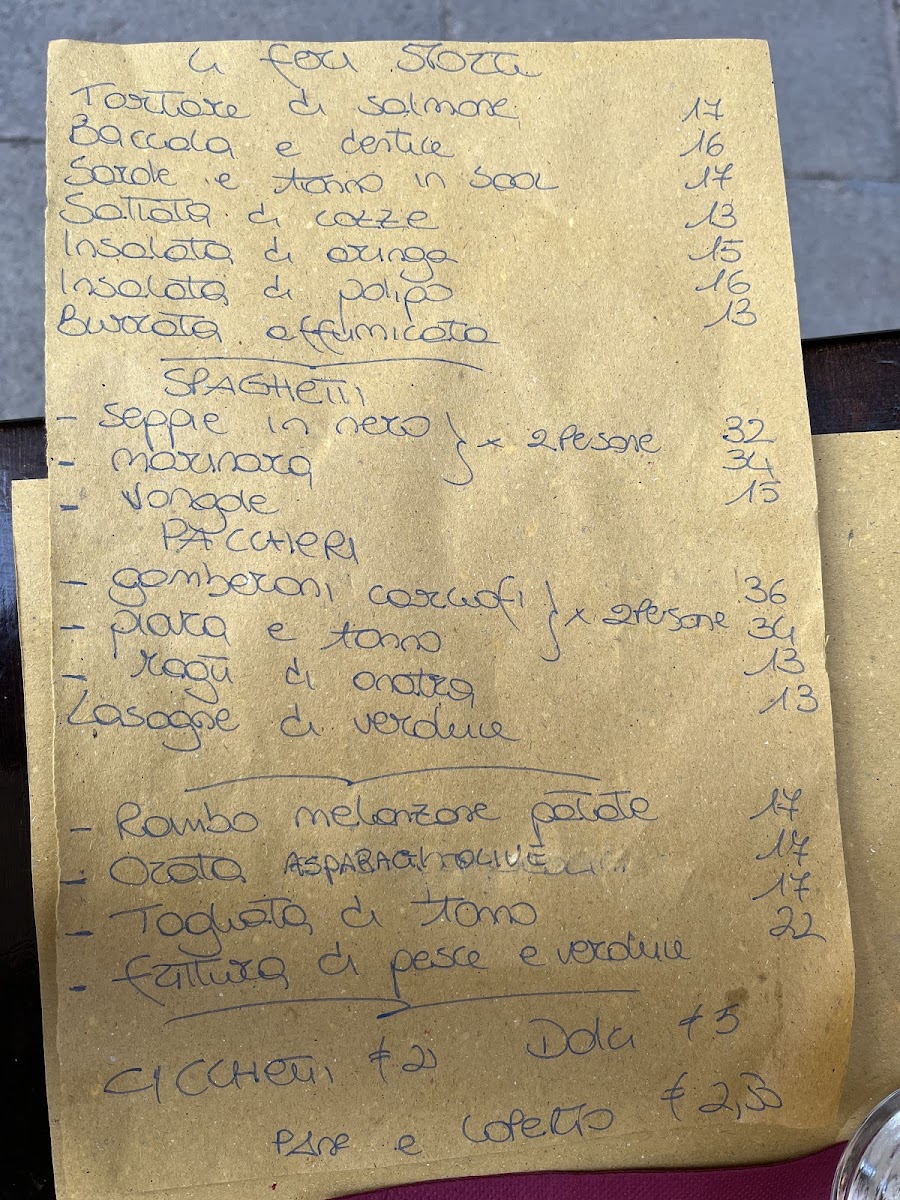 Ai feri storti
Tartare di salmone 17
Baccala e dentice 16
Sarde e tonno in saor 17
Saltata di cozze 13
Insalata di aringa 15
Insalata di polipo 16
Burrata affumicata 13
SPAGHETTI
- seppie in nero } x 2 Persone 32
- marinara 34
- vongole 15
PACCHERI
- gamberoni carciofi } x 2 Persone 36
- piovra e tonno 34
- ragù di anatra 13
Lasagne di verdure 13
- Rombo melanzane patate 17
- Orata ASPARAGI OLIVE 17
- Tagliata di tonno 17
- frittura di pesce e verdure 22
CICCHETTI € 2 Dolci € 5
PANE e coperto € 2,50